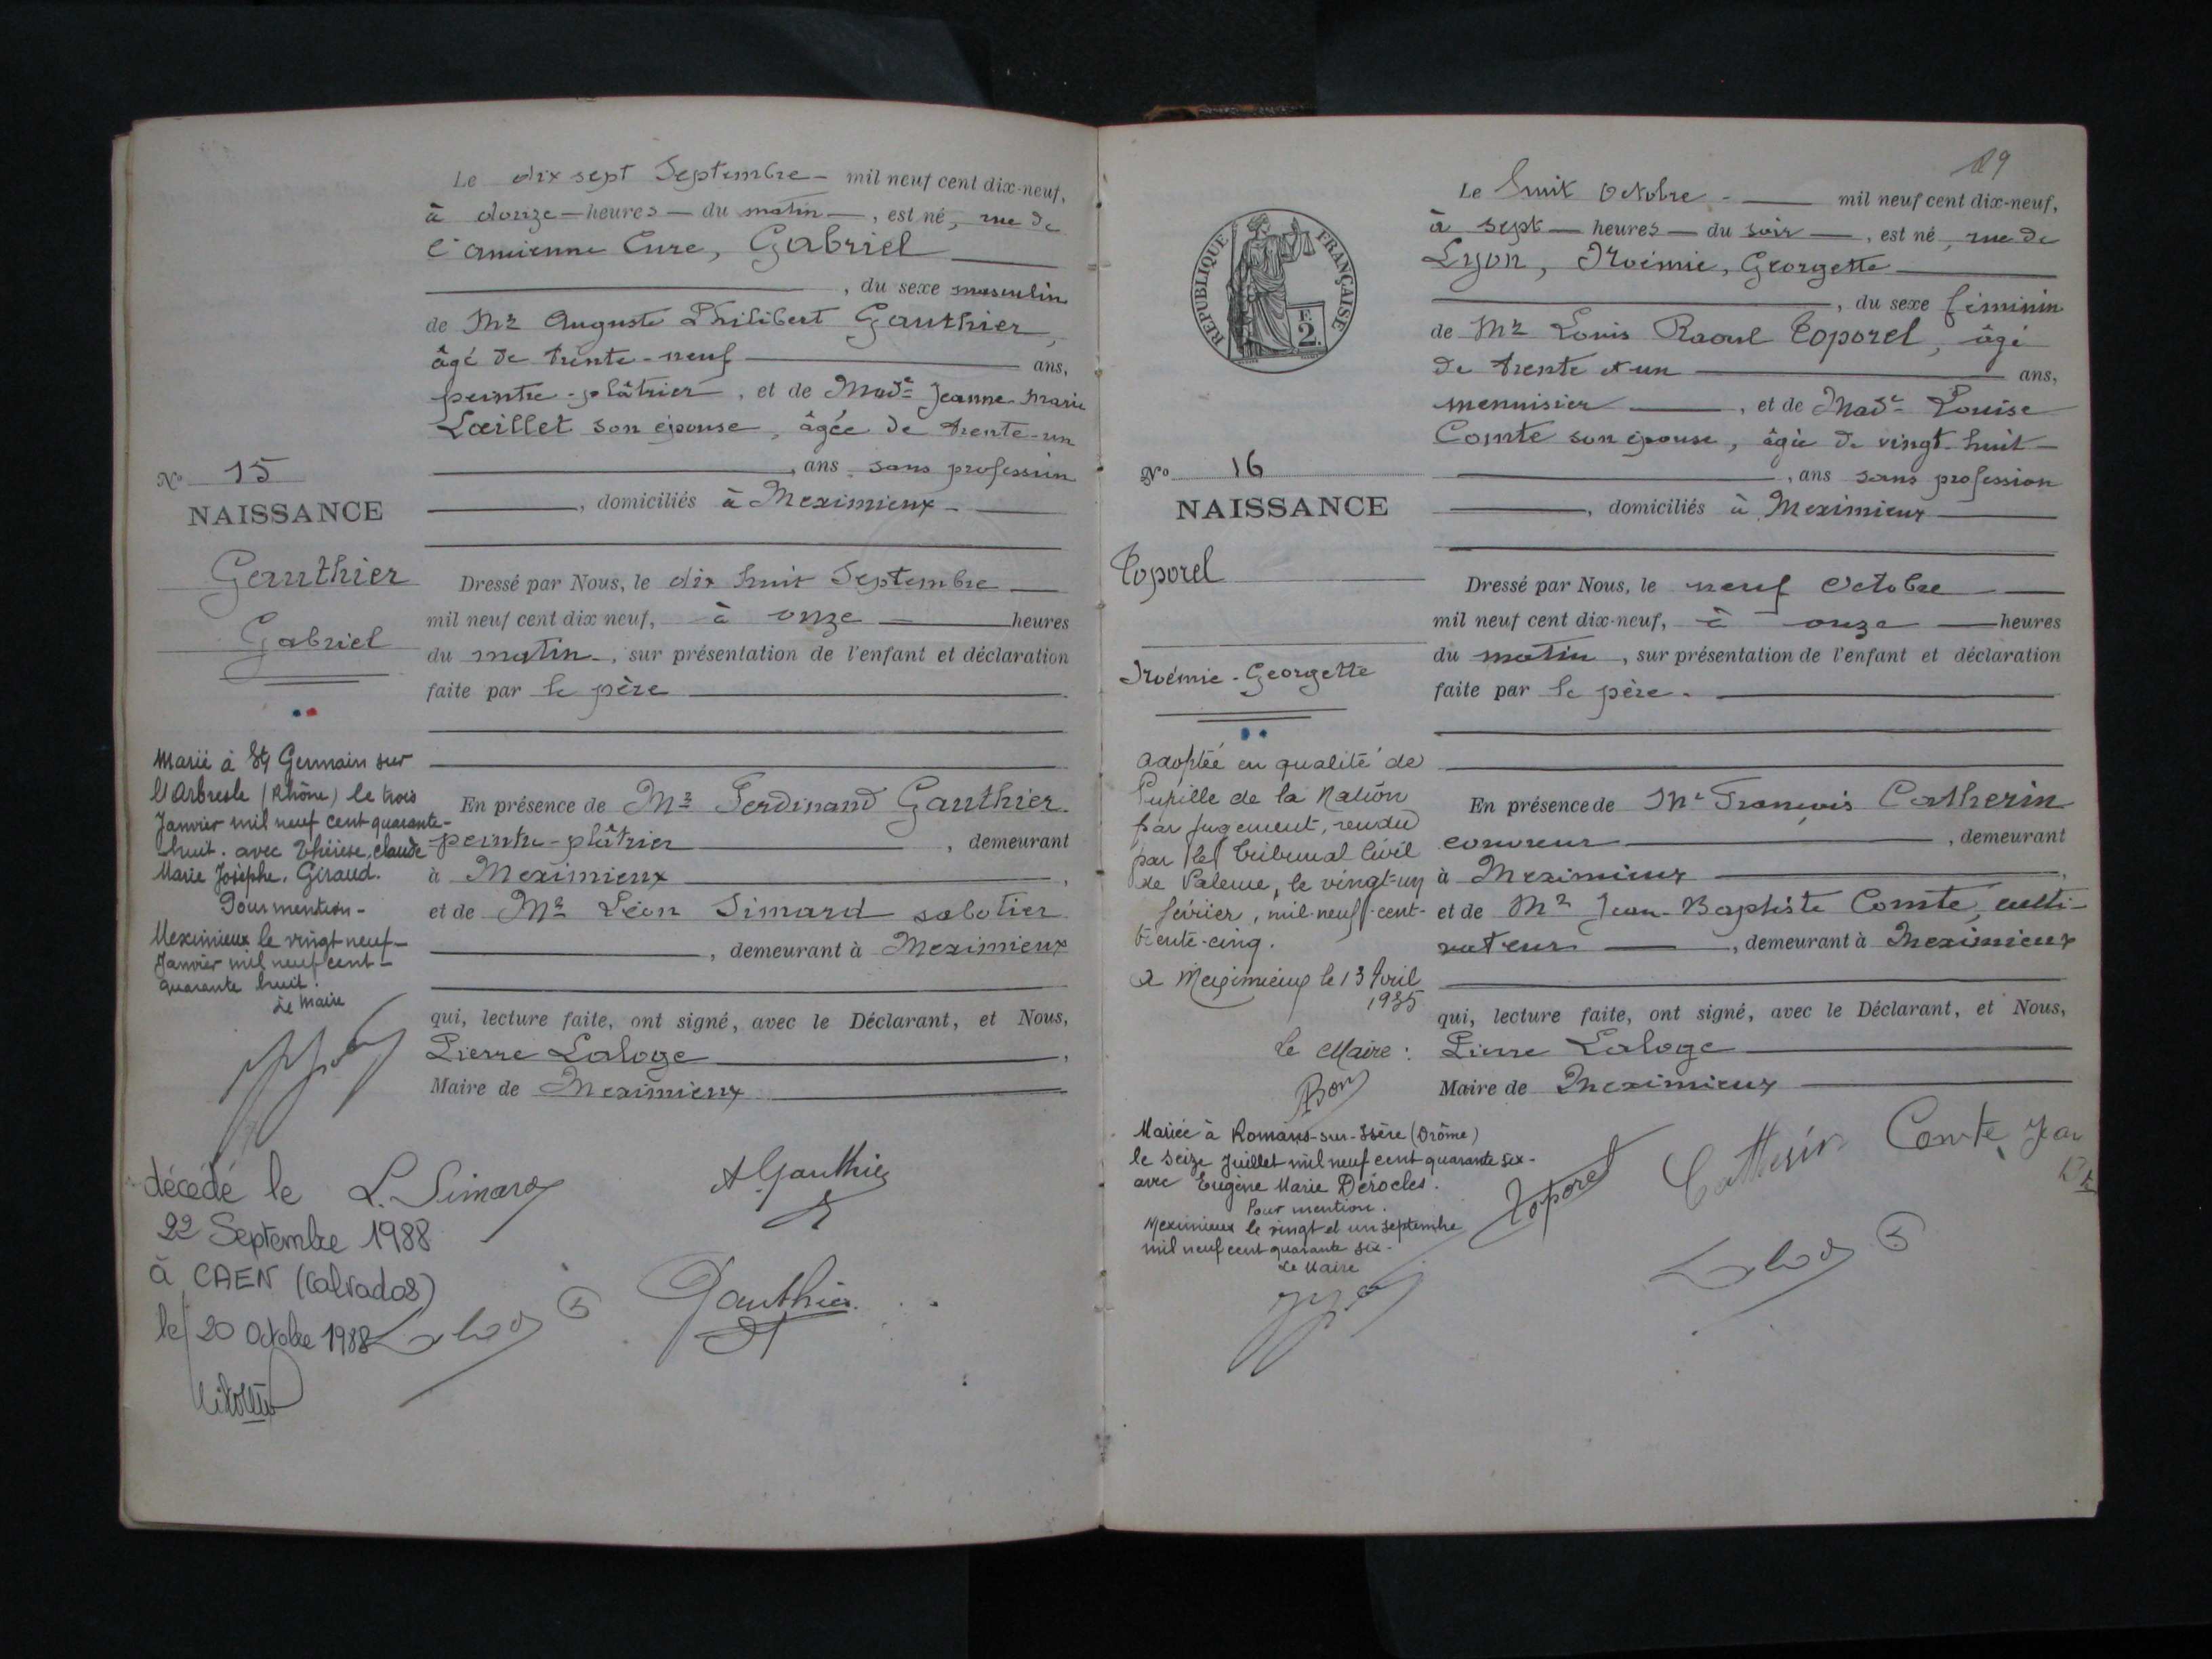 Le dix sept Septembre - mil neuf cent dix-neuf,
à onze - heures - du matin -, est né, rue de
l'ancienne Cure, Gabriel
, du sexe masculin
de Mr Auguste Philibert Gauthier,
âgé de trente-neuf ans,
peintre-plâtrier, et de Made Jeanne Marie
Lœillet son épouse, âgée de trente-un
, ans sans profession
, domiciliés à Meximieux -
No 15
NAISSANCE
Gauthier
Gabriel
Dressé par Nous, le dix huit Septembre
mil neuf cent dix neuf, à onze heures
du matin, sur présentation de l'enfant et déclaration
faite par le père
En présence de Mr Ferdinand Gauthier
peintre-plâtrier, demeurant
à Meximieux,
et de Mr Léon Simard sabotier
, demeurant à Meximieux
qui, lecture faite, ont signé, avec le Déclarant, et Nous,
Pierre Laloge,
Maire de Meximieux
Marié à St Germain sur
l'Arbresle (Rhône) le trois
Janvier mil neuf cent quarante-
huit. avec Thérèse, Claude
Marie Josèphe. Giraud.
Pour mention -
Meximieux le vingt neuf -
Janvier mil neuf cent -
quarante huit.
Le Maire
décédé le
22 Septembre 1988
à CAEN (Calvados)
le 20 Octobre 1988
L. Simard
A Gauthier
Gauthier
29
RÉPUBLIQUE FRANÇAISE
F.
2.
Le huit Octobre - mil neuf cent dix-neuf,
à sept - heures - du soir -, est né, rue de
Lyon, Noémie, Georgette
, du sexe féminin
de Mr Louis Raoul Toporel, âgé
de trente et un ans,
menuisier, et de Made Louise
Comte son épouse, âgée de vingt-huit -
, ans sans profession
, domiciliés à Meximieux
No 16
NAISSANCE
Toporel
Noémie - Georgette
Dressé par Nous, le neuf Octobre
mil neuf cent dix-neuf, à onze heures
du matin, sur présentation de l'enfant et déclaration
faite par le père.
En présence de Mr François Catherin
couvreur, demeurant
à Meximieux,
et de Mr Jean-Baptiste Comte, culti-
vateur, demeurant à Meximieux
qui, lecture faite, ont signé, avec le Déclarant, et Nous,
Pierre Laloge
Maire de Meximieux
adoptée en qualité de
Pupille de la Nation
par jugement, rendu
par le Tribunal Civil
de Valence, le vingt-un
février, mil-neuf-cent-
trente-cinq.
A Meximieux le 13 Avril
1935
Le Maire :
Mariée à Romans-sur-Isère (Drôme)
le seize Juillet mil neuf cent quarante six -
avec Eugène Marie Derocles.
Pour mention.
Meximieux le vingt et un septembre
mil neuf cent quarante six -
Le Maire
Toporel
Catherin
Comte Jean
Bte